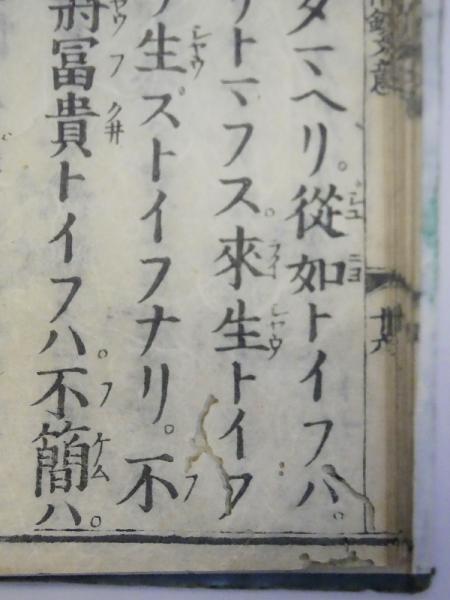 鈔文意
廿六
タマヘリ。從如トイフハ。
リトマフス。來生トイフ
生ズトイフナリ。不
將冨貴トイフハ。不簡ハ。